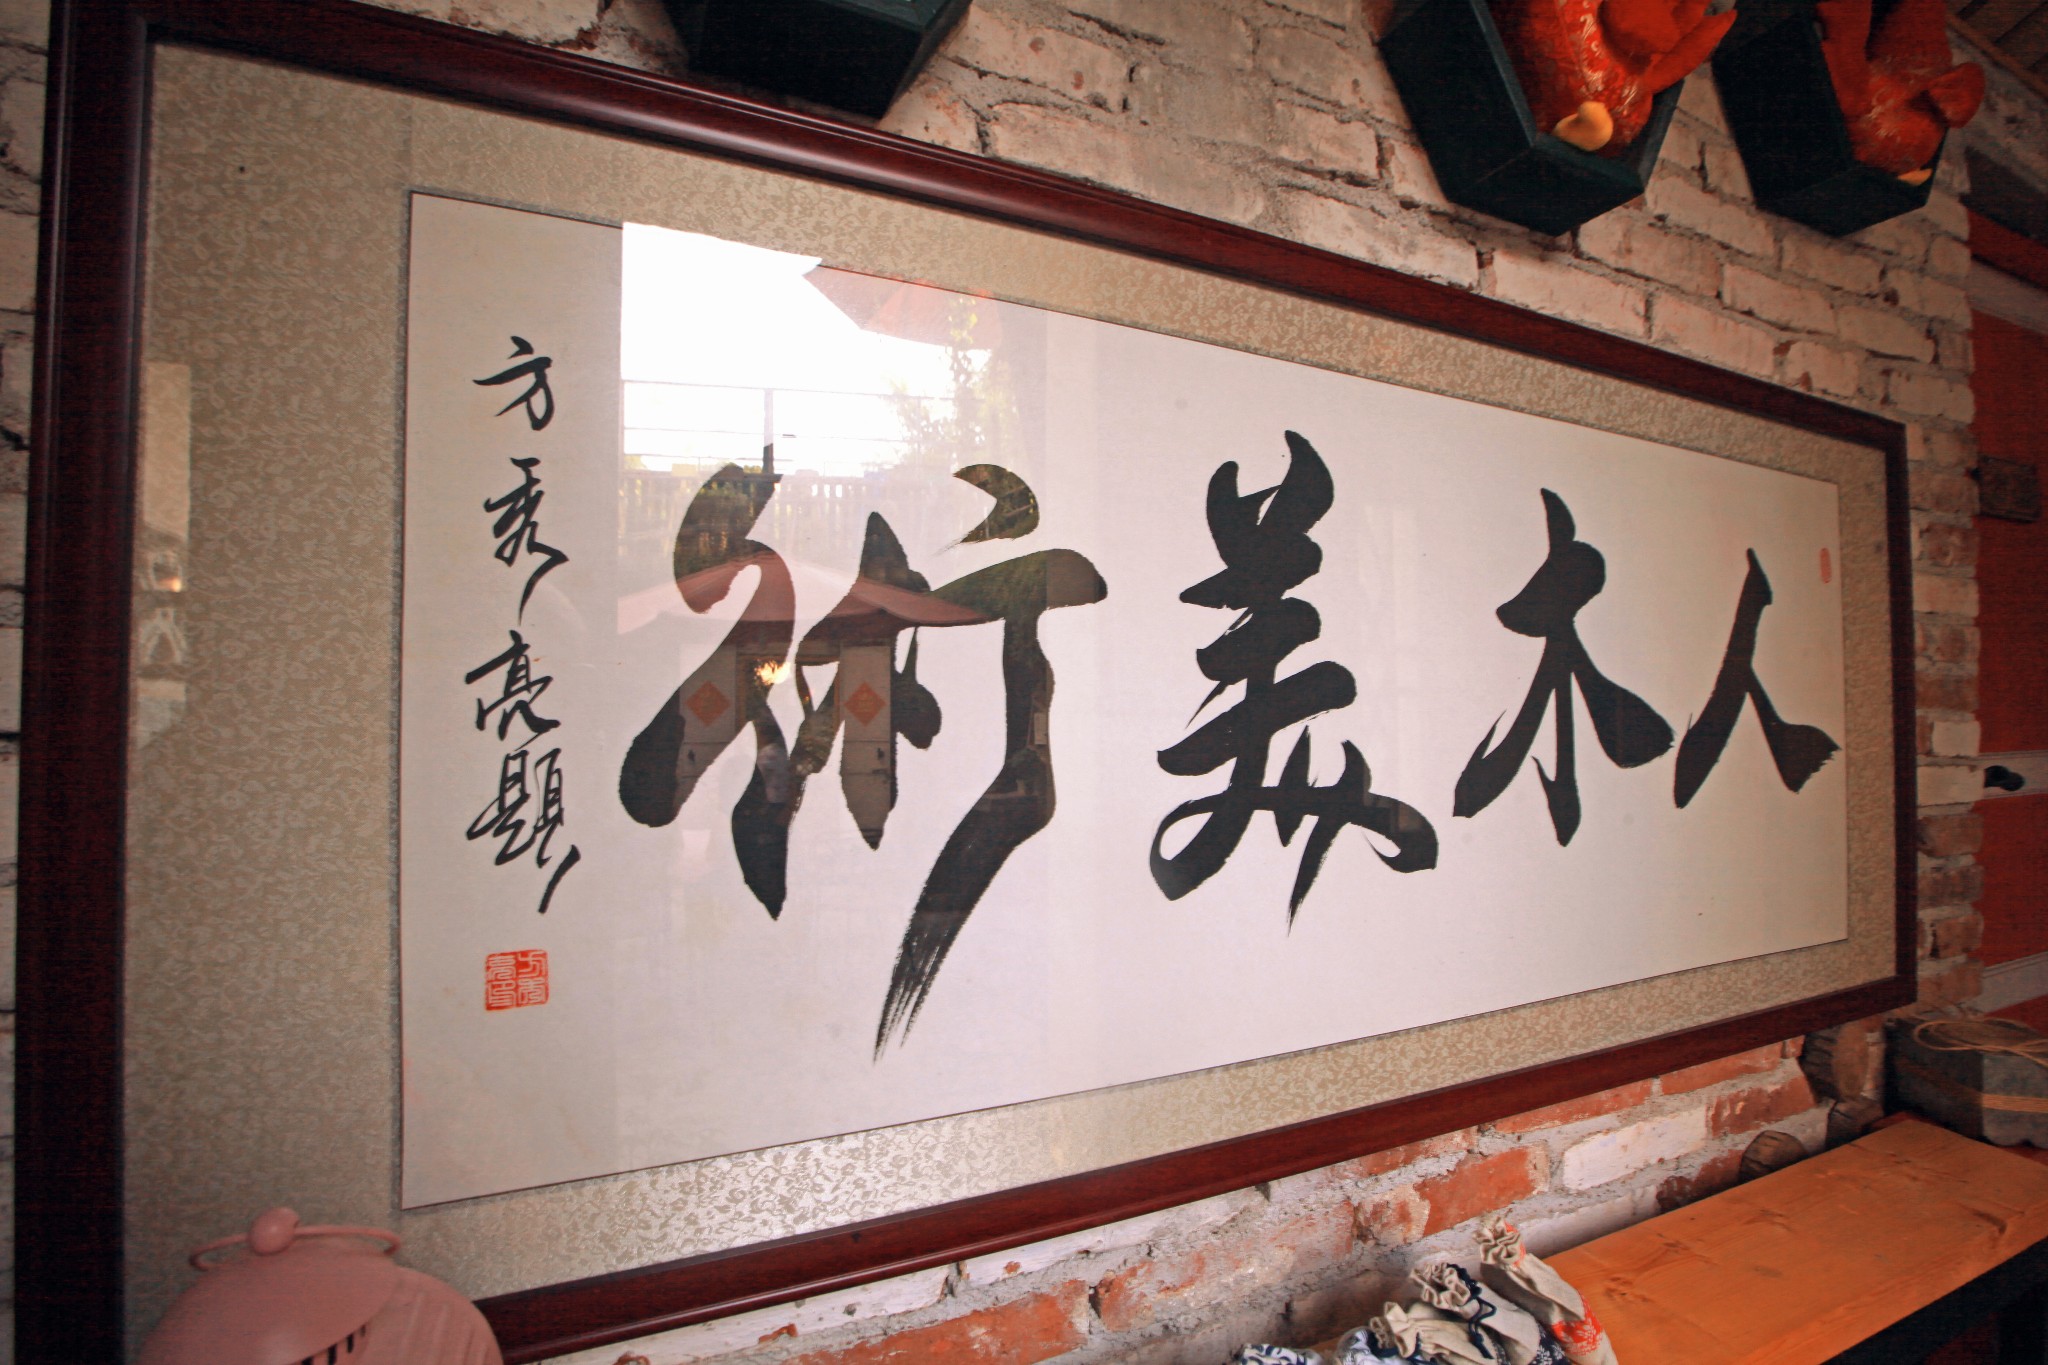 人木美術
方秀亮題